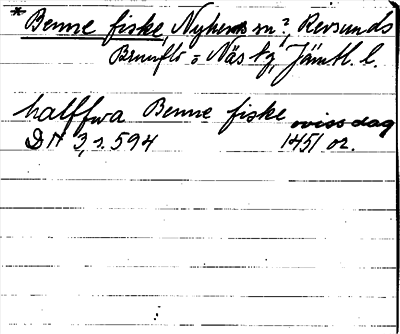 *Benne fiske, Nyhems sn?, Revsunds
Brunflo o Näs tg, Jämtl. l.
halffwa Benne fiske wiss dag
DN 3, s. 594 1451 or.